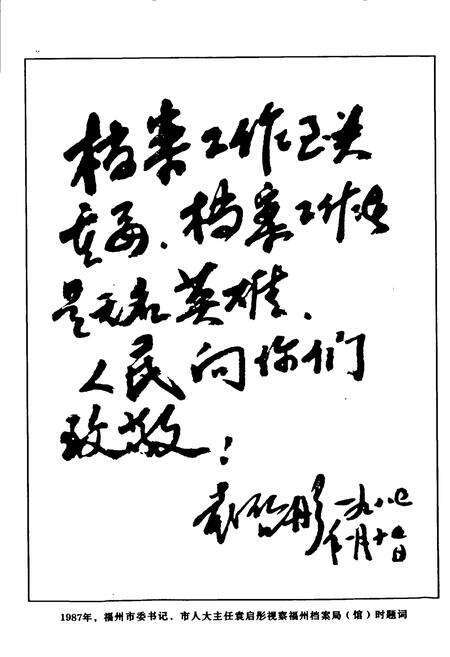 档案工作至关
重要、档案工作者
是无名英雄、
人民向你们
致敬！
袁启彤 一九八七
年一月十七日
1987年，福州市委书记、市人大主任袁启彤视察福州档案局（馆）时题词